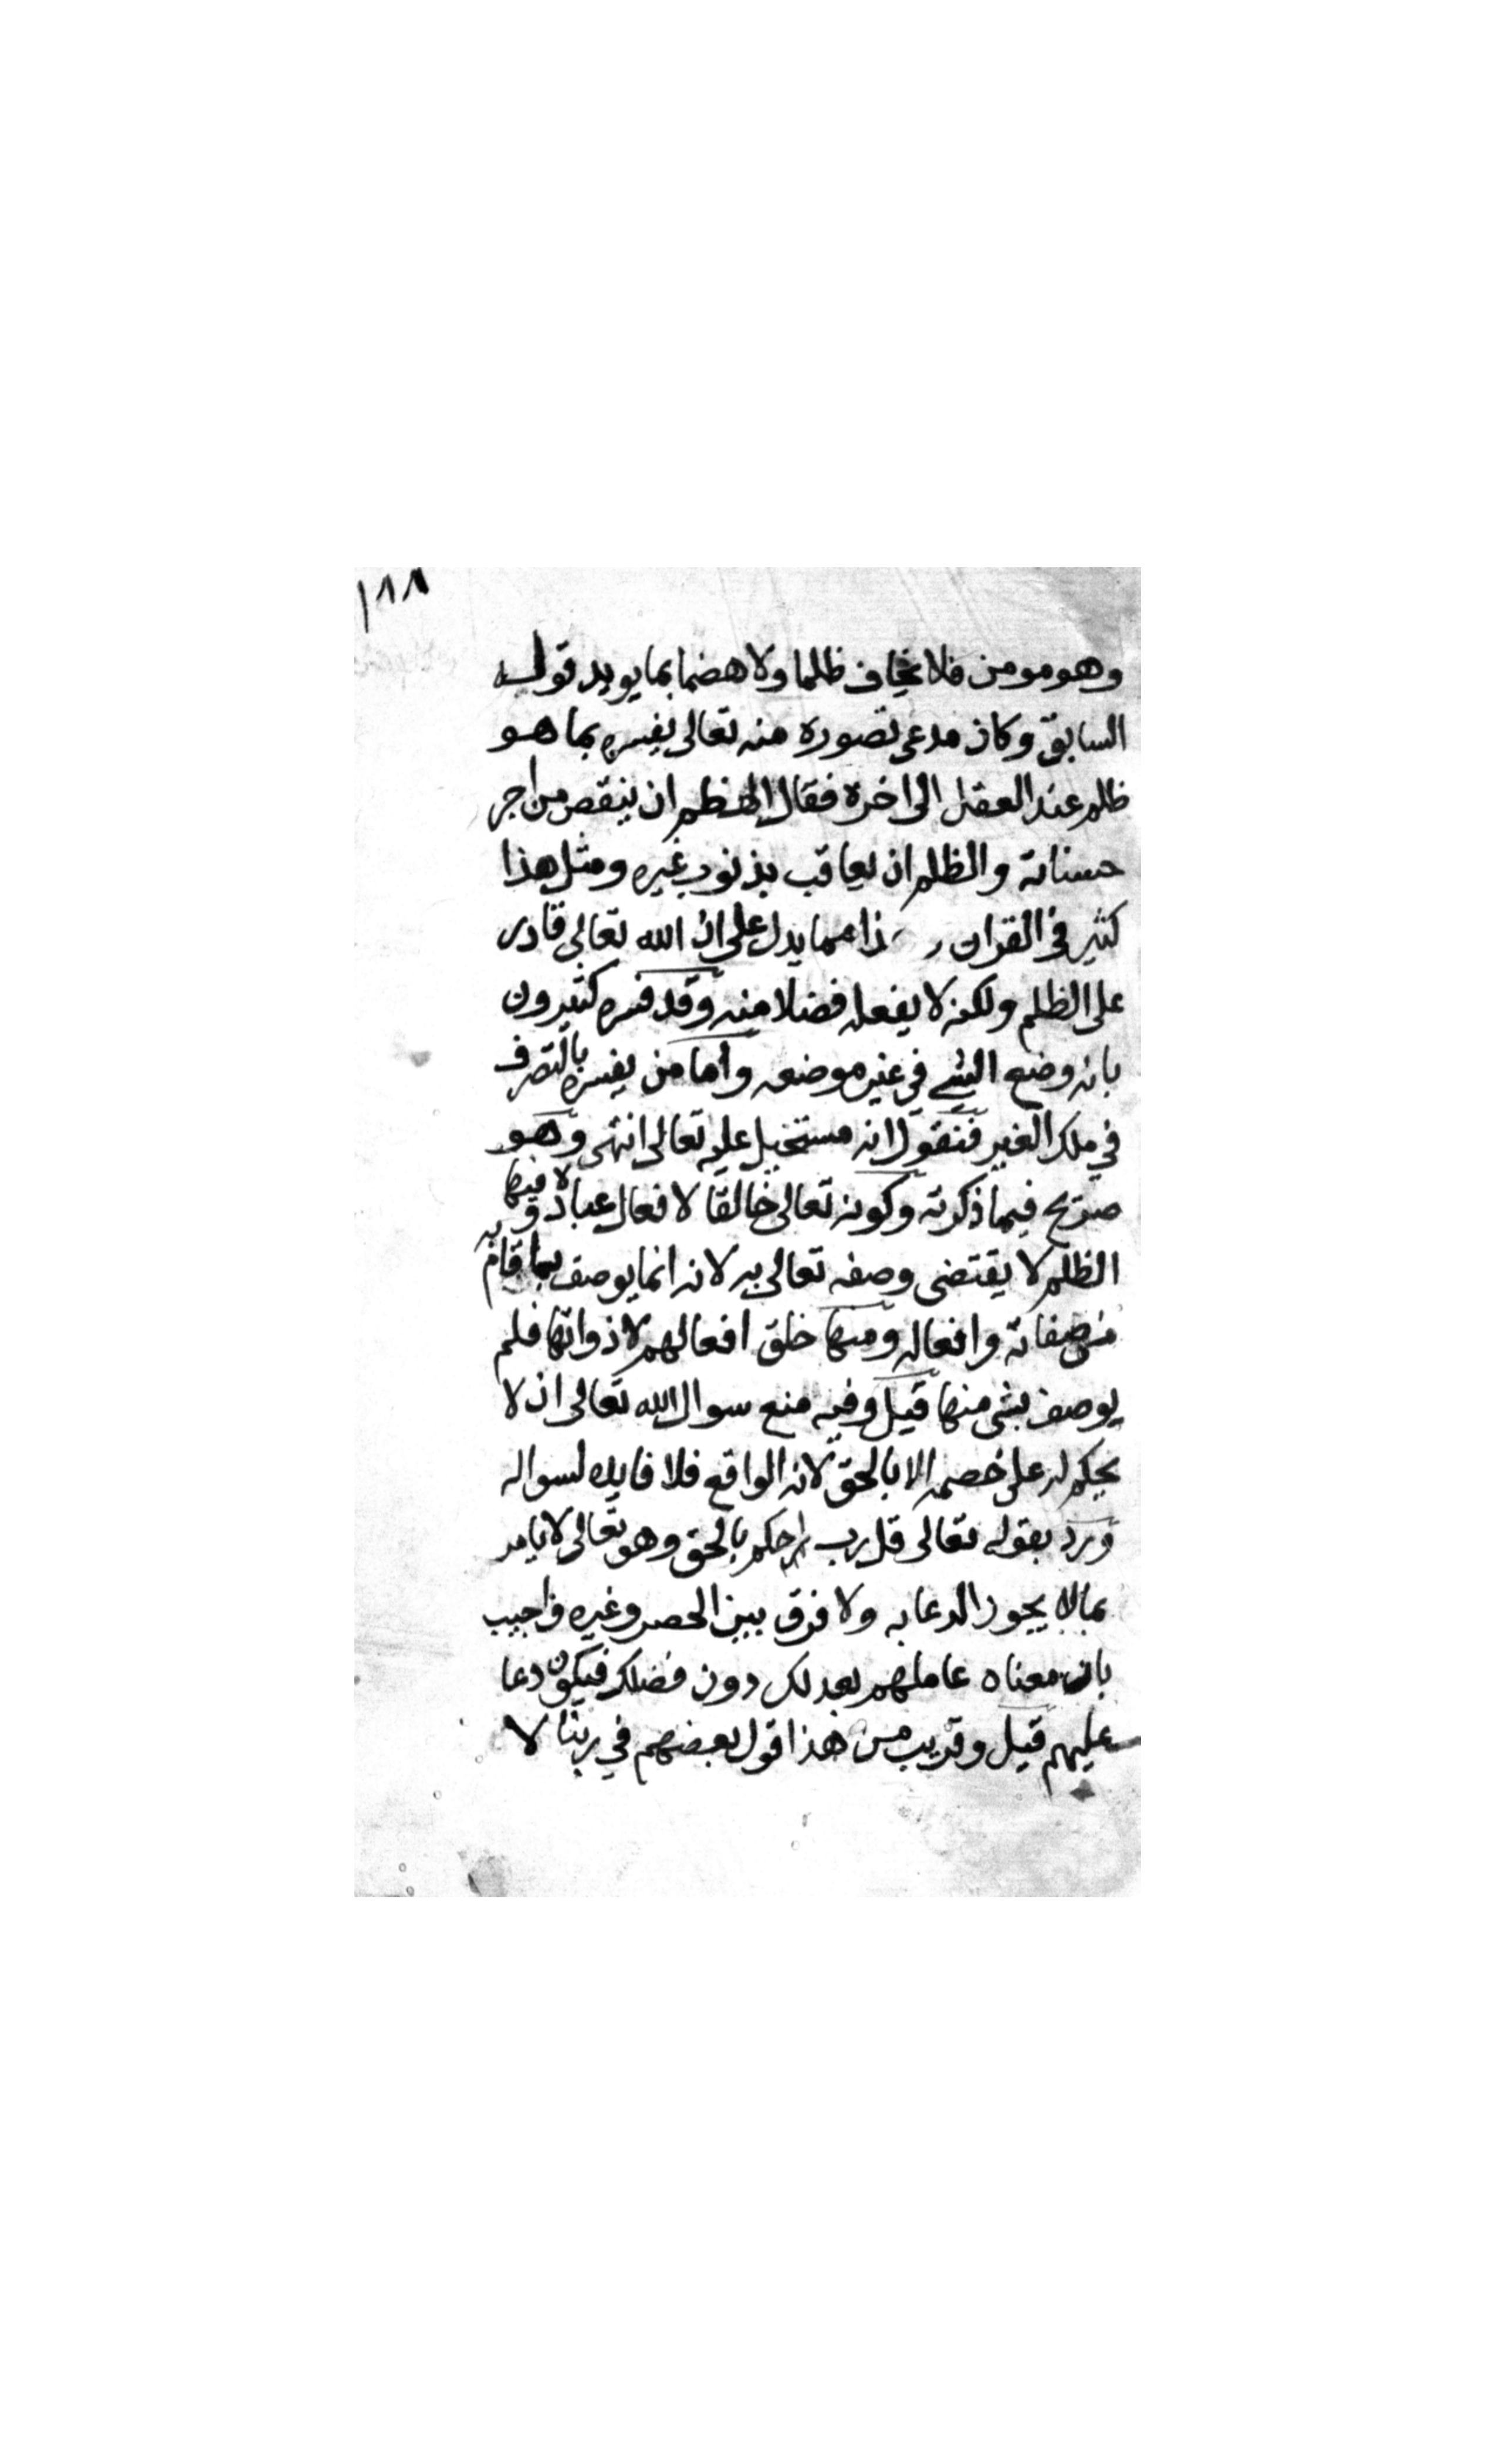 ١٨٨
وهو مومن فلا يخاف ظلما ولا هضما بما يويد قوله
السابق وكان مدعى تصوره منه تعالى يفسره بما هو
ظلم عند العقل الى اخره فقال الهضم ان ينقص من اجر
حسناته والظلم ان يعاقب بذنوب غيره ومثل هذا
كثير في القران مما يدل على ان الله تعالى قادر
على الظلم ولكنه لا يفعله فضلا منه وقد فسره كثيرون
بانه وضع الشي في غير موضعه وأما من يفسره بالتصرف
في ملك الغير فنقول انه مستحيل عليه تعالى انتهى وهو
صريح فيما ذكرته وكونه تعالى خالقا لافعال عباده وفيها
الظلم لا يقتضى وصفه تعالى به لانه انما يوصف بما قام به
من صفاته وافعاله ومنها خلق افعالهم لا ذواتها فلم
يوصف بشى منها قيل وفيه منع سوال الله تعالى ان لا
يحكم له على خصمه الا بالحق لانه الواقع فلا فايده لسواله
ويرد بقوله تعالى قل رب احكم بالحق وهو تعالى لا يامر
بما لا يجوز الدعا به ولا فرق بين الحصر وغيره واجيب
بان معناه عاملهم بعدلك دون فضلك فيكون دعا
عليهم قيل وقريب من هذا قول بعضهم في ربنا لا